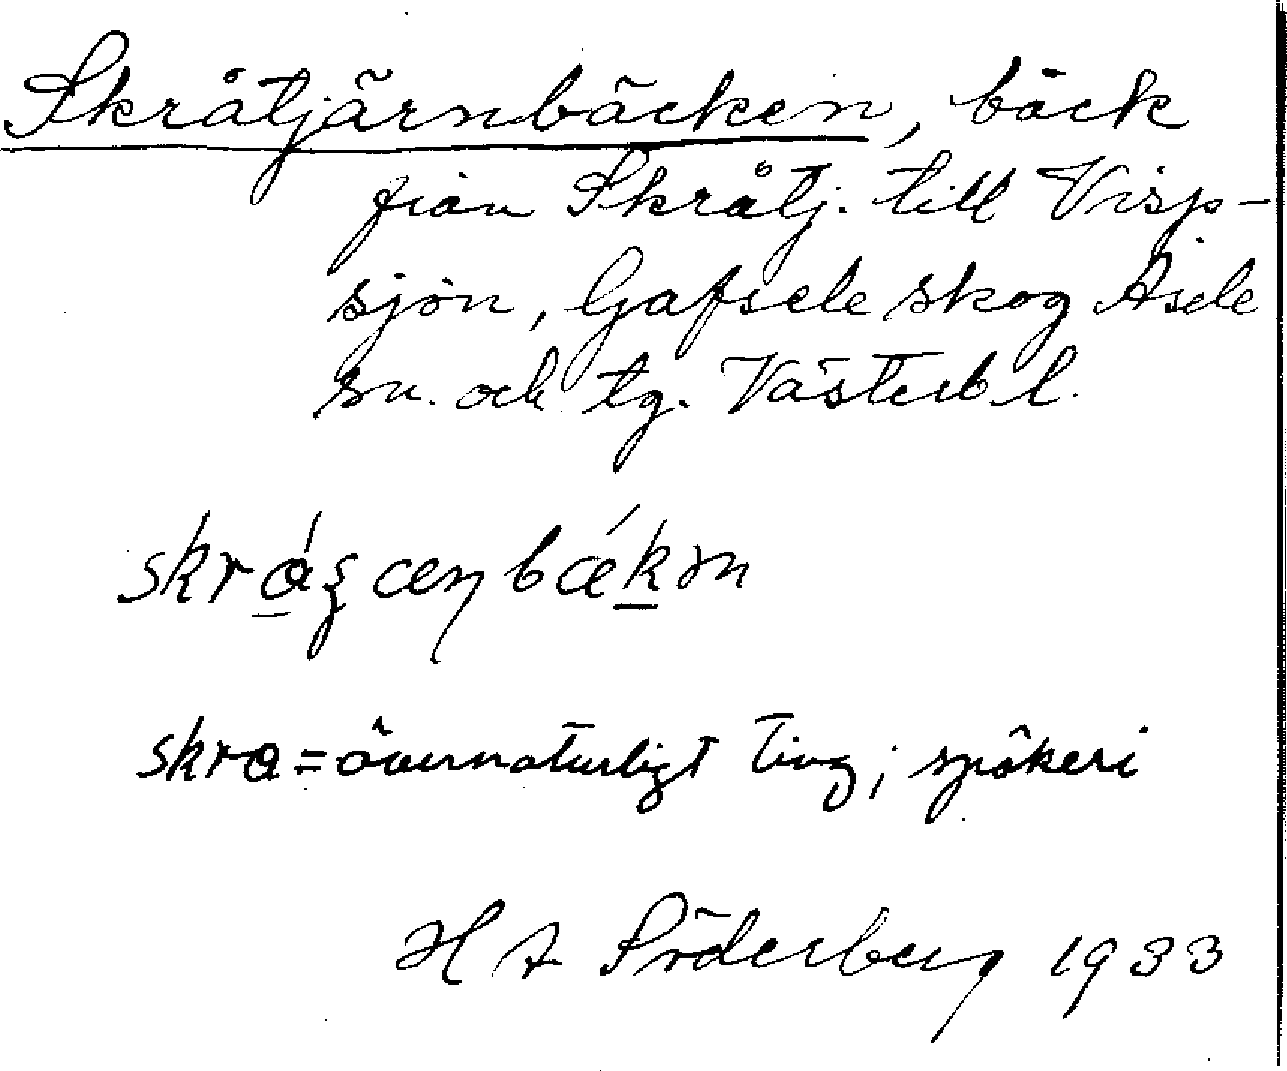 Skråtjärnbäcken, bäck
från Skråtj. till Visp-
sjön, Gafsele skog Åsele
sn. och tg. Västerb l.
skra=övernaturligt ting; spökeri
H A Söderberg 1933